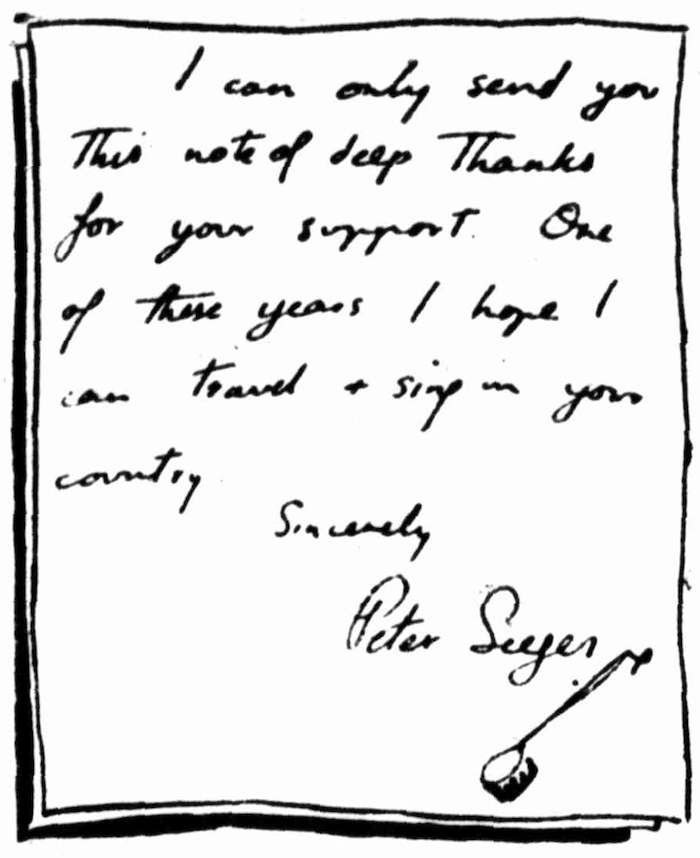 I can only send you
This note of deep Thanks
for your support. One
of these years I hope I
can travel + sing in your
country
Sincerely
Peter Seeger